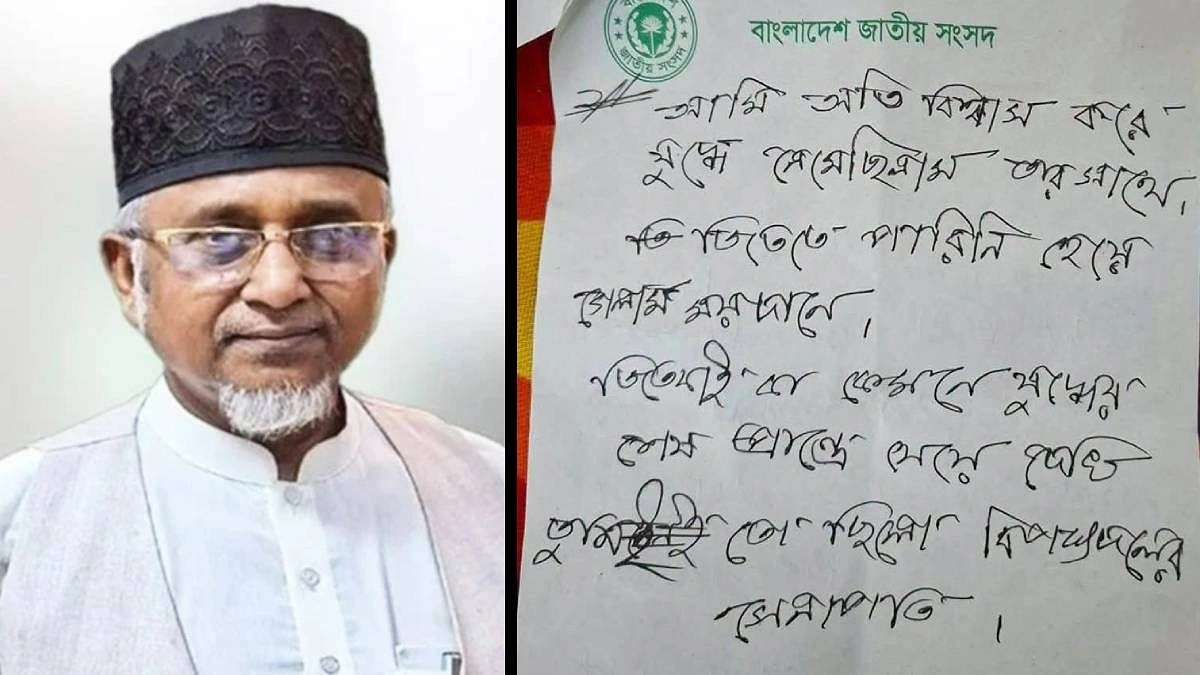 বাংলাদেশ জাতীয় সংসদ
জাতীয় সংসদ
আমি অতি বিশ্বাস করে
যুদ্ধে নেমেছিলাম তার সাথে।
জিতেতে পারিনি হেরে
গেলাম ময়দানে।
জিতেযাই বা কেমনে যুদ্ধের
শেষ প্রান্তে যেয়ে দেখি
তুমি তো ছিলে বিপক্ষদলের
সেনাপতি।